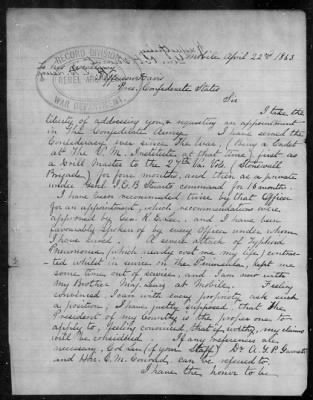 Mobile April 22nd 1863
RECORD DIVISION
REBEL ARCHIVES
WAR DEPARTMENT
Jefferson Davis
Pres, Confederate States
Sir
I take the
liberty of addressing you & requesting an appointment
in the Confederate Army. I have served the
Confederacy ever since the War, (being a Cadet
at the V. M. Institute at that time) first as
a Drill Master to the 27th Va. Vols. Stonewall
Brigade) for four months, and then as a private
under Genl J. E. B. Stuarts command for 18 months.
I have been recommended twice by that Officer
for an appointment, which recommendations were
approved by Gen. R. E. Lee, and I have been
favorably spoken of by every Officer under whom
I have served. A severe attack of Typhoid
Pneumonia, (which nearly cost me my life,)
whilst in service on the Peninsula, kept me
some time out of service, and I am now with
my Brother Maj. at Mobile. Feeling
convinced, I can with every propriety ask such
a position, I have, justly supposed, that the
President of my Country is the proper one to
apply to, feeling convinced, that if worthy, my claims
will be considered. If any references are
necessary, Col Lee (of your Staff) Dr A. Y. P. Garnett
and Hon. C. M. Conrad, can be referred to.
I have the honor to be